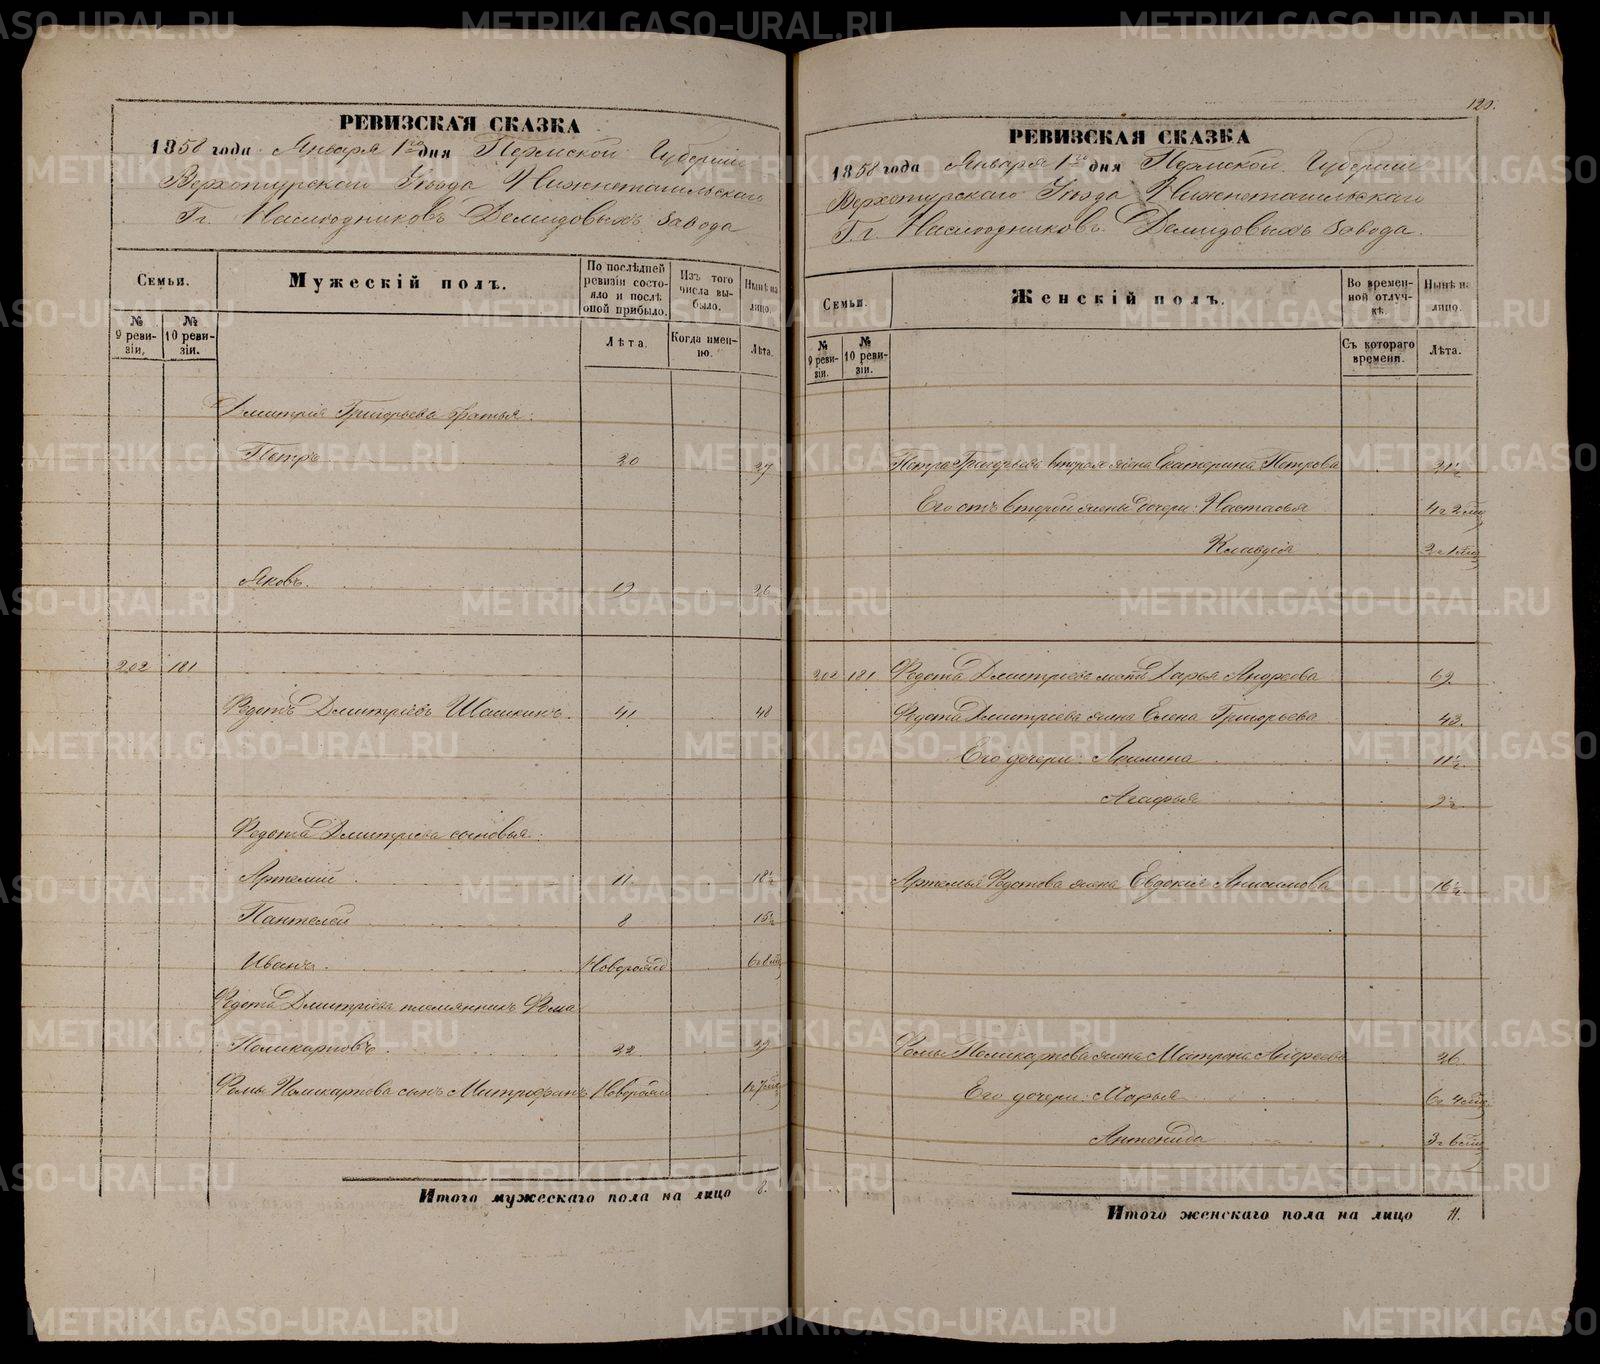 РЕВИЗСКАЯ СКАЗКА
1858 года Января 1го дня Пермской Губернiи
Верхотурскаго Уѣзда Нижнетагильскаго
Гг. Наслѣдниковъ Демидовыхъ завода
Семьи.
Мужескiй полъ.
По послѣдней ревизiи состояло и послѣ оной прибыло.
Изъ того числа выбыло.
Нынѣ на лицо.
№ 9 ревизiи.
№ 10 ревизiи.
Лѣта.
Когда именно.
Лѣта.
Дмитрiя Григорьева братья:
Петръ 20 27
Яковъ 19 26
202 181
Федотъ Дмитрiевъ Шашкинъ 41 48
Федота Дмитрiева сыновья:
Артемiй 11 18½
Пантелей 8 15½
Иванъ Новорожд
Федота Дмитрiева племянникъ Фома
Поликарповъ 22 29
Фомы Поликарпова сынъ Митрофанъ Новорожд
Итого мужескаго пола на лицо 8.
120.
РЕВИЗСКАЯ СКАЗКА
1858 года Января 1го дня Пермской Губернiи
Верхотурскаго Уѣзда Нижнетагильскаго
Гг. Наслѣдниковъ Демидовыхъ завода.
Семьи.
Женскiй полъ.
Во временной отлучкѣ.
Нынѣ на лицо.
№ 9 ревизiи.
№ 10 ревизiи.
Съ котораго времени.
Лѣта.
Петра Григорьева вторая жена Екатерина Петрова 21½
Его отъ второй жены дочери: Настасья 4 г 2 мѣс
Клавдiя 2 г 1 мѣс
202 181 Федота Дмитрiева мать Дарья Андреева 69
Федота Дмитрiева жена Елена Григорьева 43
Его дочери: 11½
Агафья 2½
Артемья Федотова жена Евдокiя Анисимова 16½
Фомы Поликарпова жена Матрона Андреева 26
Его дочери: Марья 6 г 4 мѣс
Антонида 3 г 6 мѣс
Итого женскаго пола на лицо 11.
METRIKI.GASO-URAL.RU